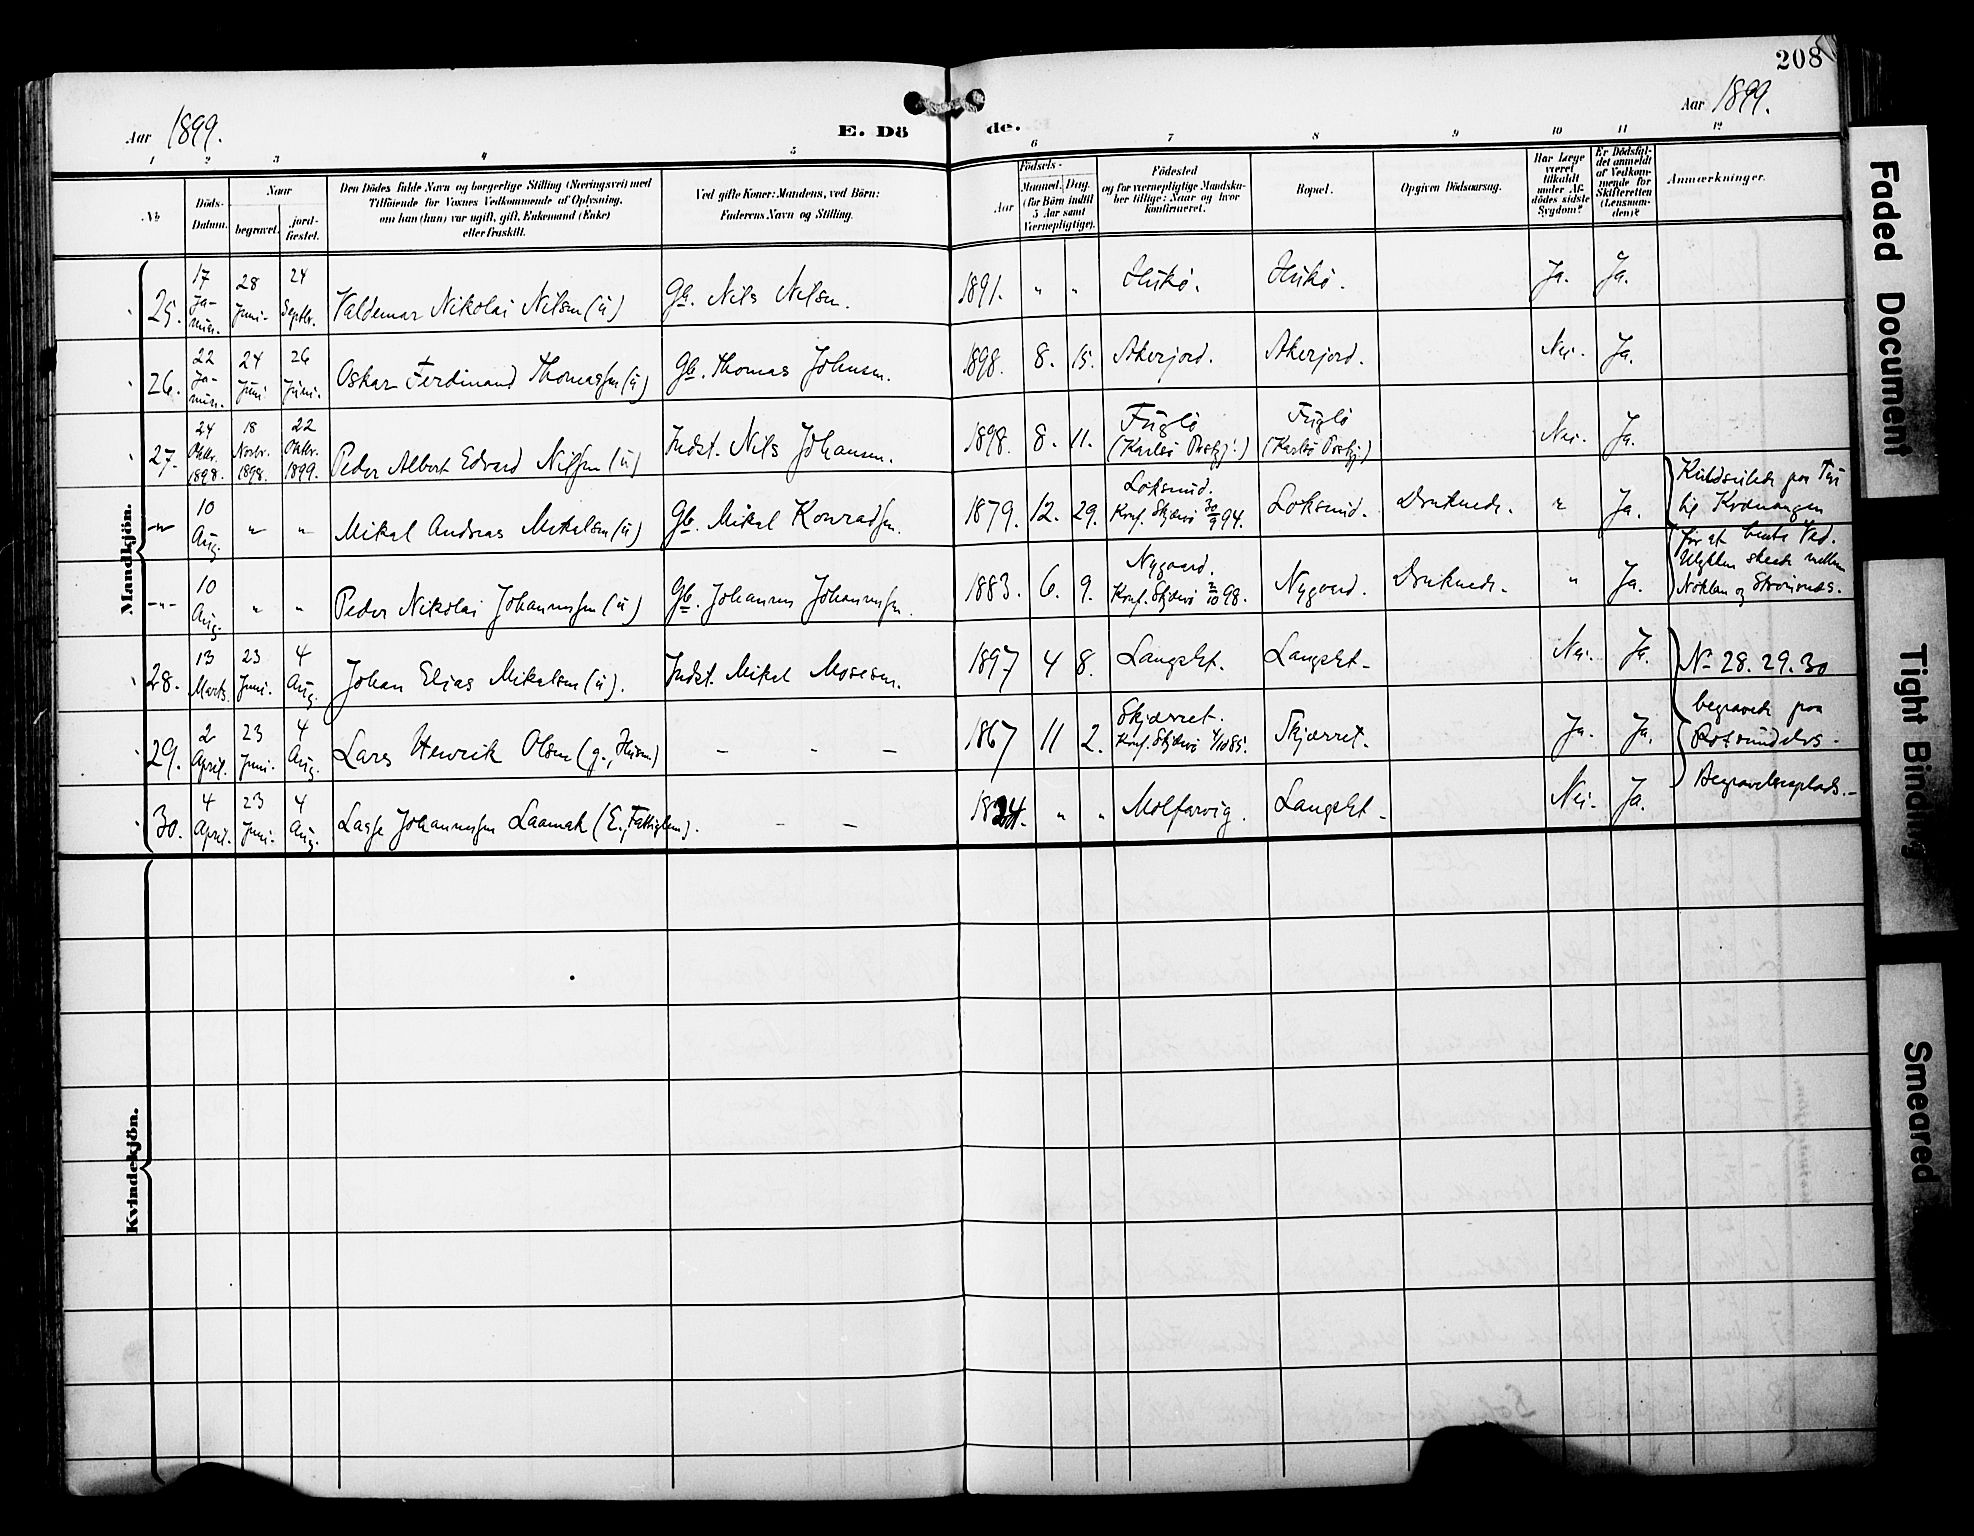 208
Aar 1899.
E. Dö
de.
Aar 1899.
1 2 3 4 5 6 7 8 9 10 11 12
No
Döds-
Datum.
Naar
begravet.
jord-
fæstet.
Den Dödes fulde Navn og borgerlige Stilling (Næringsvei) med
Tilföiende for Voxnes Vedkommende af Oplysning,
om han (hun) var ugift, gift, Enkemand (Enke)
eller fraskilt.
Ved gifte Koner: Mandens, ved Börn:
Faderens Navn og Stilling.
Födsels-
Aar
Maaned. Dag.
(for Börn indtil
5 Aar samt
Værnepligtige).
Födested
og for værnepligtige Mandska-
ber tillige: Naar og hvor
konfirmeret.
Bopæl.
Opgiven Dödsaarsag.
Har Læge
været
tilkaldt
under Af-
dödes sidste
Sygdom?
Er Dödsfal-
det anmeldt
af Vedkom-
mende for
Skifteretten
(Lensman-
den)?
Anmærkninger.
Mandkjön.
25. 17 Januar. 28 Juni. 24 Septbr. Valdemar Nikolai Nilsen (ú) Gb. Nils Nilsen. 1891. " " Hukö. Hukö. Ja. Ja.
26. 22 Januar. 24 Juni 26 Juni. Oskar Ferdinand Thomassen (ú) Gb. Thomas Johnsen. 1898. 8. 15. Akerjord. Akerjord. Nei. Ja.
27. 24 Oktbr. 1898. 18 Novbr. 1898. 22 Oktbr. 1899. Peder Albert Edvard Nilsen (ú) Indst. Nils Johansen. 1898. 8. 11. Fuglö (Karlsö Prstgj:) Fuglö (Karlsö Prstgj:) Nei. Ja.
-"- 10 Aug. " " Mikal Andreas Mikalsen (ú) Gb. Mikal Konradsen. 1879. 12. 29. Loksund. Konf. Skjærvö 30/9 94. Loksund. Druknede. " Ja. Kuldseilede paa Tur
til Kvænangen
-"- 10 Aug. " " Peder Nikolai Johannessen (ú) Gb. Johannes Johannessen. 1883. 6. 9. Nygaard. Konf. Skjærvö 2/10 98. Nygaard. Druknede. " Ja.
for at hente Ved.
Ulykken skede mellem
Noklan og Strömnæs.
28. 13 Marts. 23 Juni. 4 Aug. Johan Elias Mikalsen (ú). Indst. Mikal Mosesen. 1897 4 8. Langslet. Langslet. Nei. Ja. No 28. 29. 30
29. 2 April. 23 Juni. 4 Aug. Lars Henrik Olsen (g., Husm) - - - 1867 11 2. Skjærret. Konf. Skjærvö 4/10 85. Skjærret. Ja. Ja.
begravede paa
Rotsundelvs
30. 4 April. 23 Juni. 4 Aug. Lasse Johannessen Laamak (E., Fattiglem). - - 1824. " " Molfarvig. Langslet. Nei. Ja. Begravelsesplads.
Kvindekjön.
Faded Document
Tight Binding
Smeared